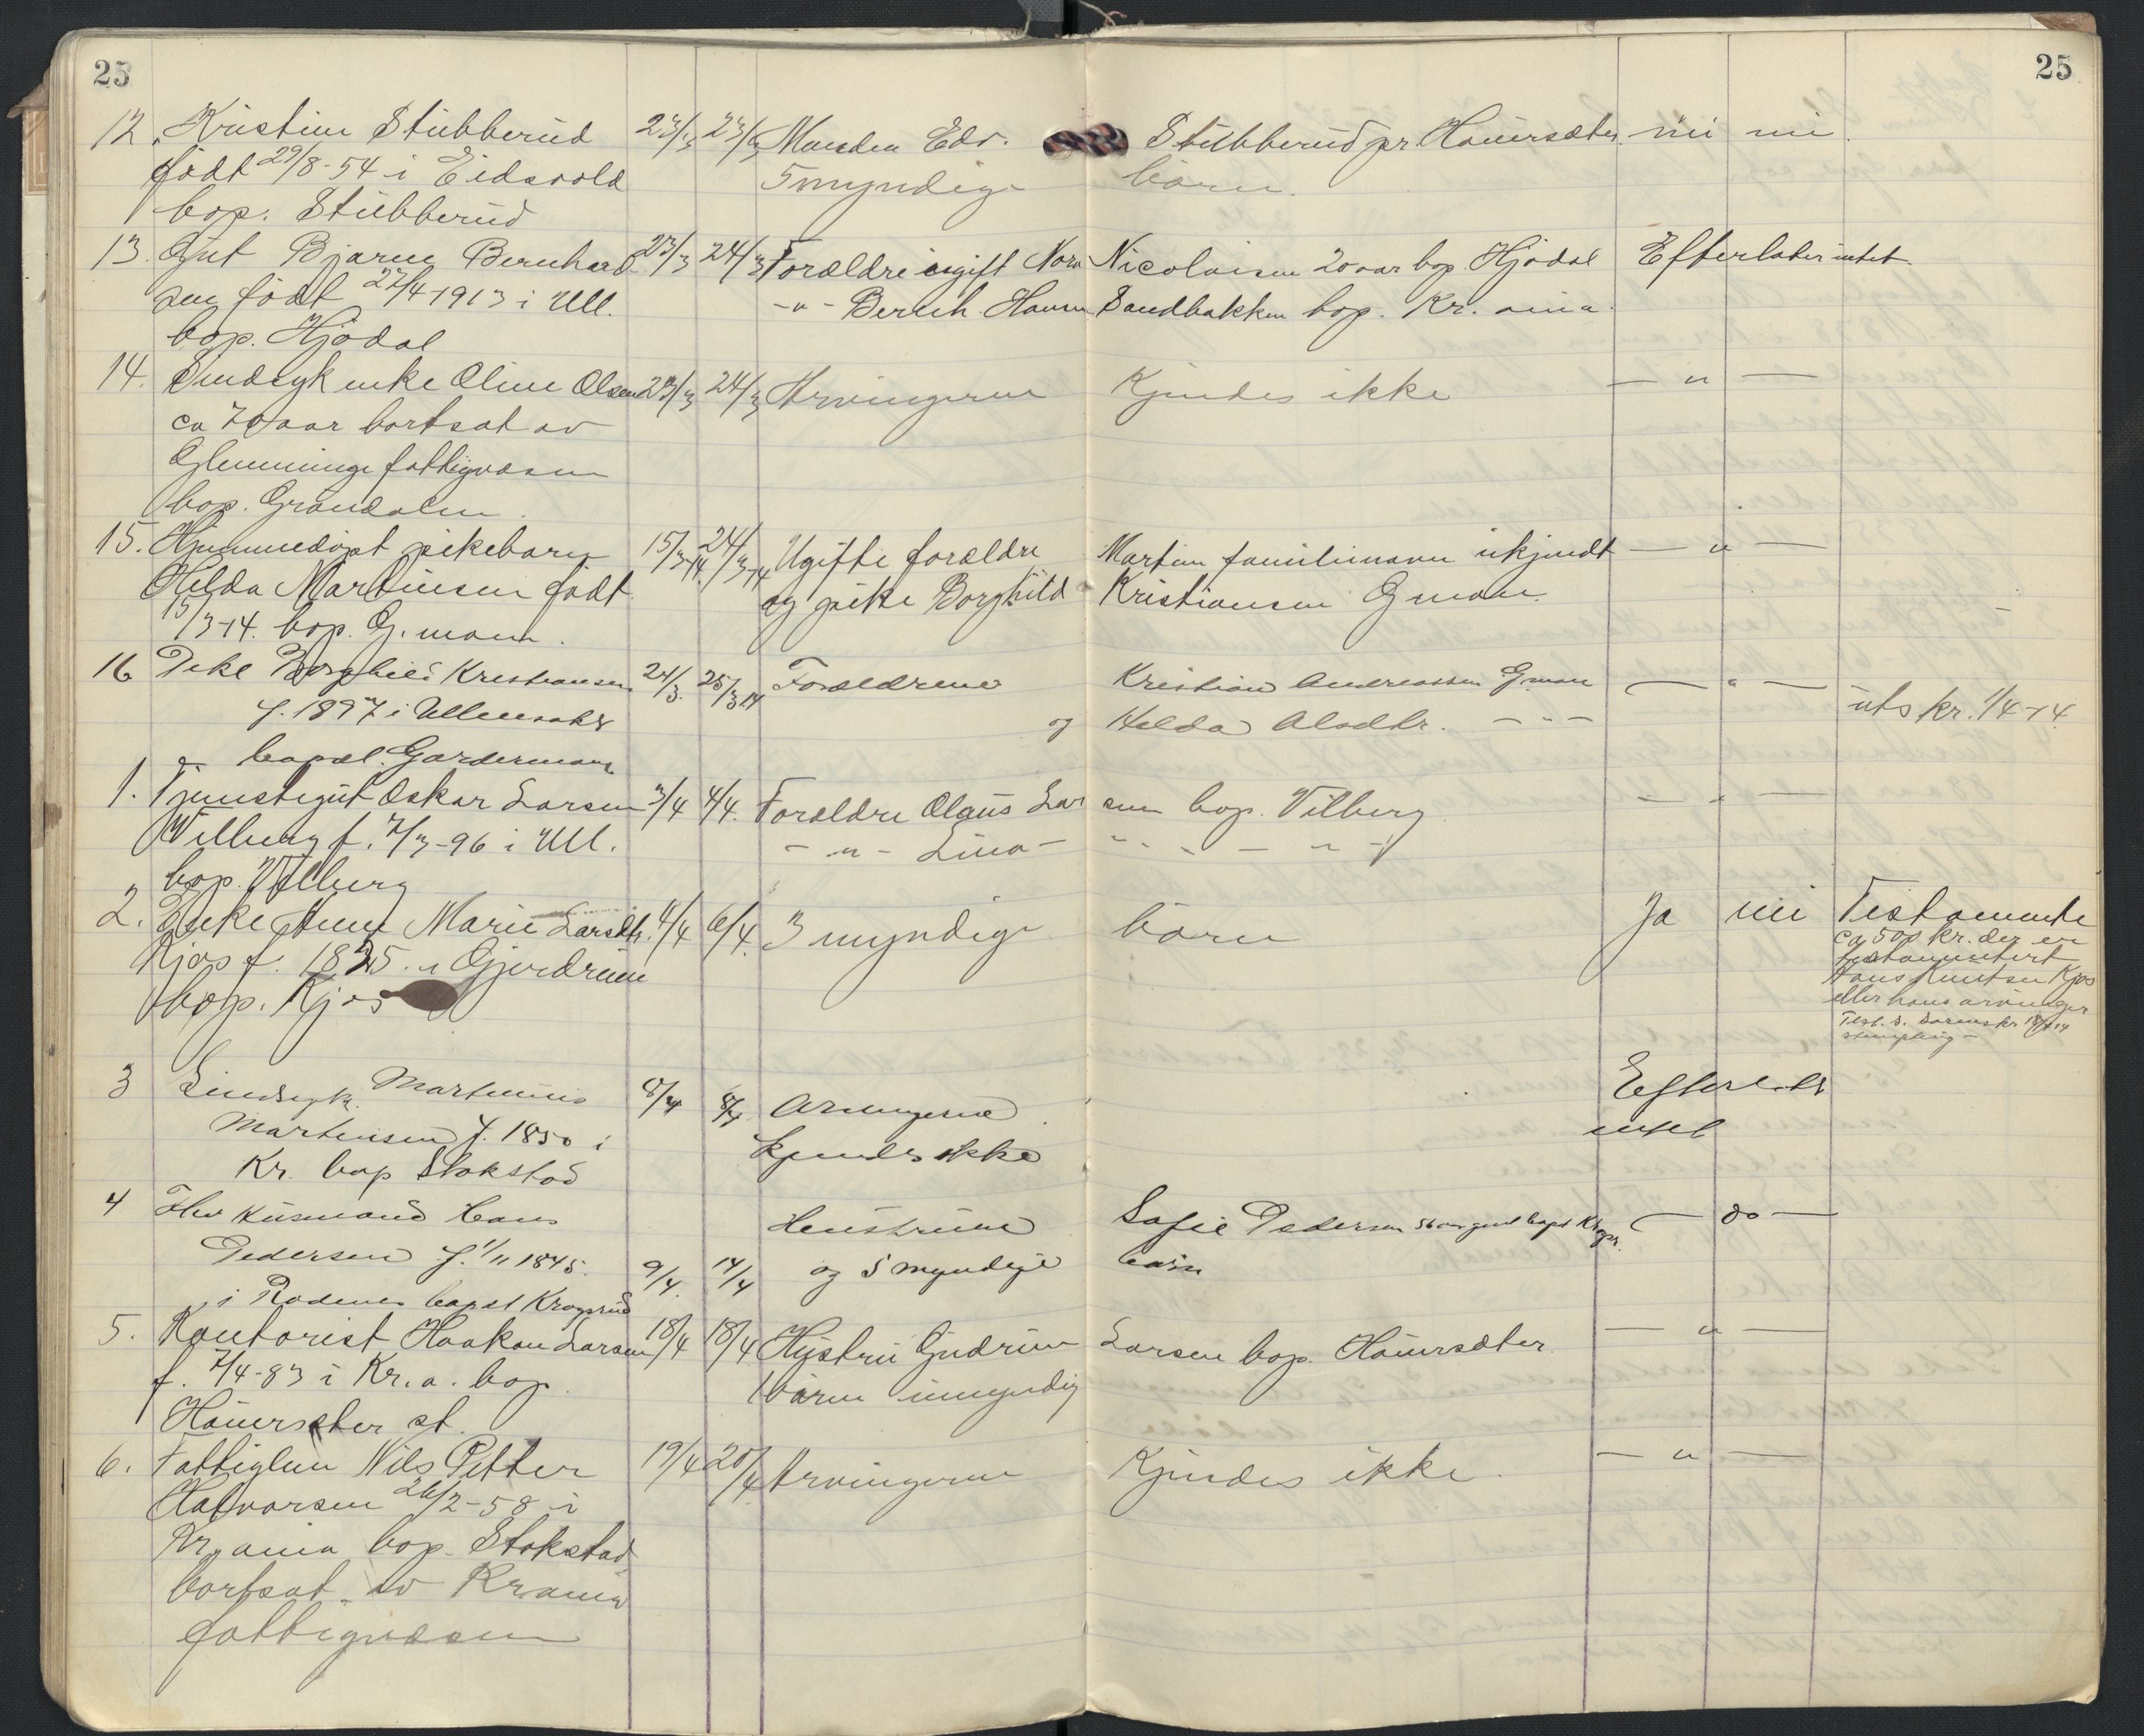 25 25
12. Kristine Stubberud 23/3 23/3 Manden Edv. Stubberud pr Hauersæter. nei nei
født 29/8-54 i Eidsvold 5 myndige børn.
bop. Stubberud
13. Gut Bjarne Bernhard- 23/3 24/3 Forældre ugift Nora Nicolaisen 20 aar bop. Hjødal Efterlater intet.
sen født 27/4 1913 i Ull. -"- Bernh. Hansen Sandbakken bop. Kr.ania.
bop. Hjødal
14. Sindsyk enke Oline Olsen 23/3 24/3 Arvingerne Kjendes ikke — " —
ca 70 aar bortsat av
Glemminge fattigvæsen
bop. Grøndalen.
15. Hjemmedøpt pikebarn 15/3-14 24/3-14 Ugifte forældre Martin familienavn ukjendt — " —
Helda Martinsen født og pike Borghild Kristiansen G.moen.
15/3-14. bop. G.moen.
16 Pike Borghild Kristiansen 24/3. 25/3 14 Forældrene Kristian Andreassen G.moen — " —
f. 1897 i Ullensaker og Helda Olsdtr. - " - uts kr. 1/4-14
bopæl. Gardermoen
1. Tjenestegut Oskar Larsen 3/4 4/4. Forældre Olaus Larsen bop. Vilberg. - " —
Vilberg f. 7/3-96 i Ull. - " - Lina - - " - " -
bop. Vilberg
2. Enke Anne Marie Larsdtr. 4/4 6/4. 3 myndige børn Ja nei Testamente
Kjos f. 1825. i Gjerdrum ca 500 kr. der er
bop. Kjos testamentert
Hans Knutsen Kjos
eller hans arvinger
3 Sindsyk. Martinius 8/4 8/4 Arvingerne Efterlater
Martinsen f. 1850 i kjendes ikke intet
Kr. bop Stokstad
4 Fhv Husmand Hans Henstruen Sofie Pedersen — do —
Pedersen f. 1/11 1845. 9/4. 14/4 og 5 myndige børn
i Rødenes bopæl Krogsrud
5. Kontorist Haakon Larsen 18/4 18/4 Hustru Gudrun Larsen bop. Hauersæter. — " —
f. 7/4-83 i Kr.a. bop. 1 barn umyndig
Hauersæter st.
6. Fattiglem Nils Petter 19/4 20/4 Arvingerne Kjendes ikke. — " —
Halvorsen 26/2-58 i
Kr.ania bop. Stokstad
bortsat av Kr.ania
fattigvæsen